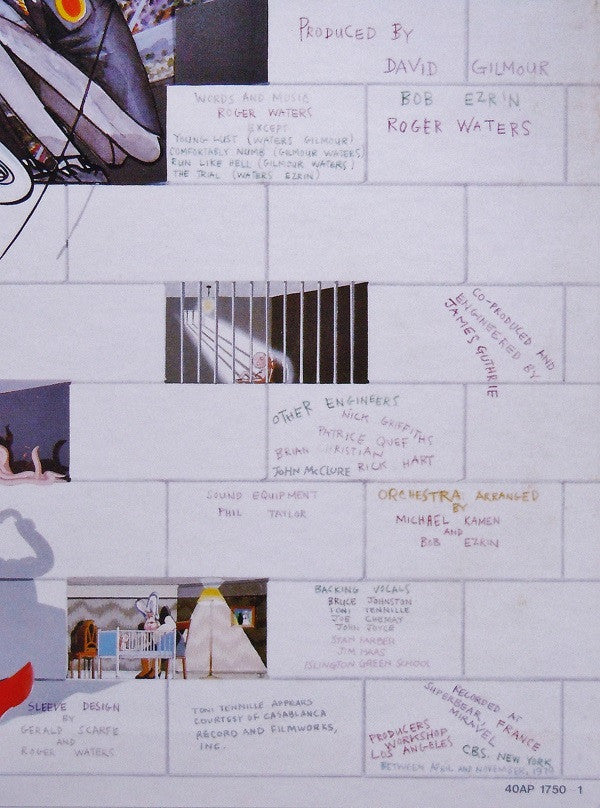 PRODUCED BY
DAVID GILMOUR
BOB EZRIN
ROGER WATERS
WORDS AND MUSIC
ROGER WATERS
EXCEPT
YOUNG LUST (WATERS GILMOUR)
COMFORTABLY NUMB (GILMOUR WATERS)
RUN LIKE HELL (GILMOUR WATERS)
THE TRIAL (WATERS EZRIN)
CO-PRODUCED AND
ENGINEERED BY
JAMES GUTHRIE
OTHER ENGINEERS
NICK GRIFFITHS
PATRICE QUEF
BRIAN CHRISTIAN
JOHN McCLURE RICK HART
SOUND EQUIPMENT
PHIL TAYLOR
ORCHESTRA ARRANGED
BY
MICHAEL KAMEN
AND
BOB EZRIN
BACKING VOCALS
BRUCE JOHNSTON
TONI TENNILLE
JOE CHEMAY
JOHN JOYCE
STAN FARBER
JIM HAAS
ISLINGTON GREEN SCHOOL
SLEEVE DESIGN
BY
GERALD SCARFE
AND
ROGER WATERS
TONI TENNILLE APPEARS
COURTESY OF CASABLANCA
RECORD AND FILMWORKS,
INC.
RECORDED AT
SUPERBEAR, FRANCE
MIRAVEL
PRODUCERS
WORKSHOP
LOS ANGELES
CBS. NEW YORK
BETWEEN APRIL AND NOVEMBER, 1979
40AP 1750-1